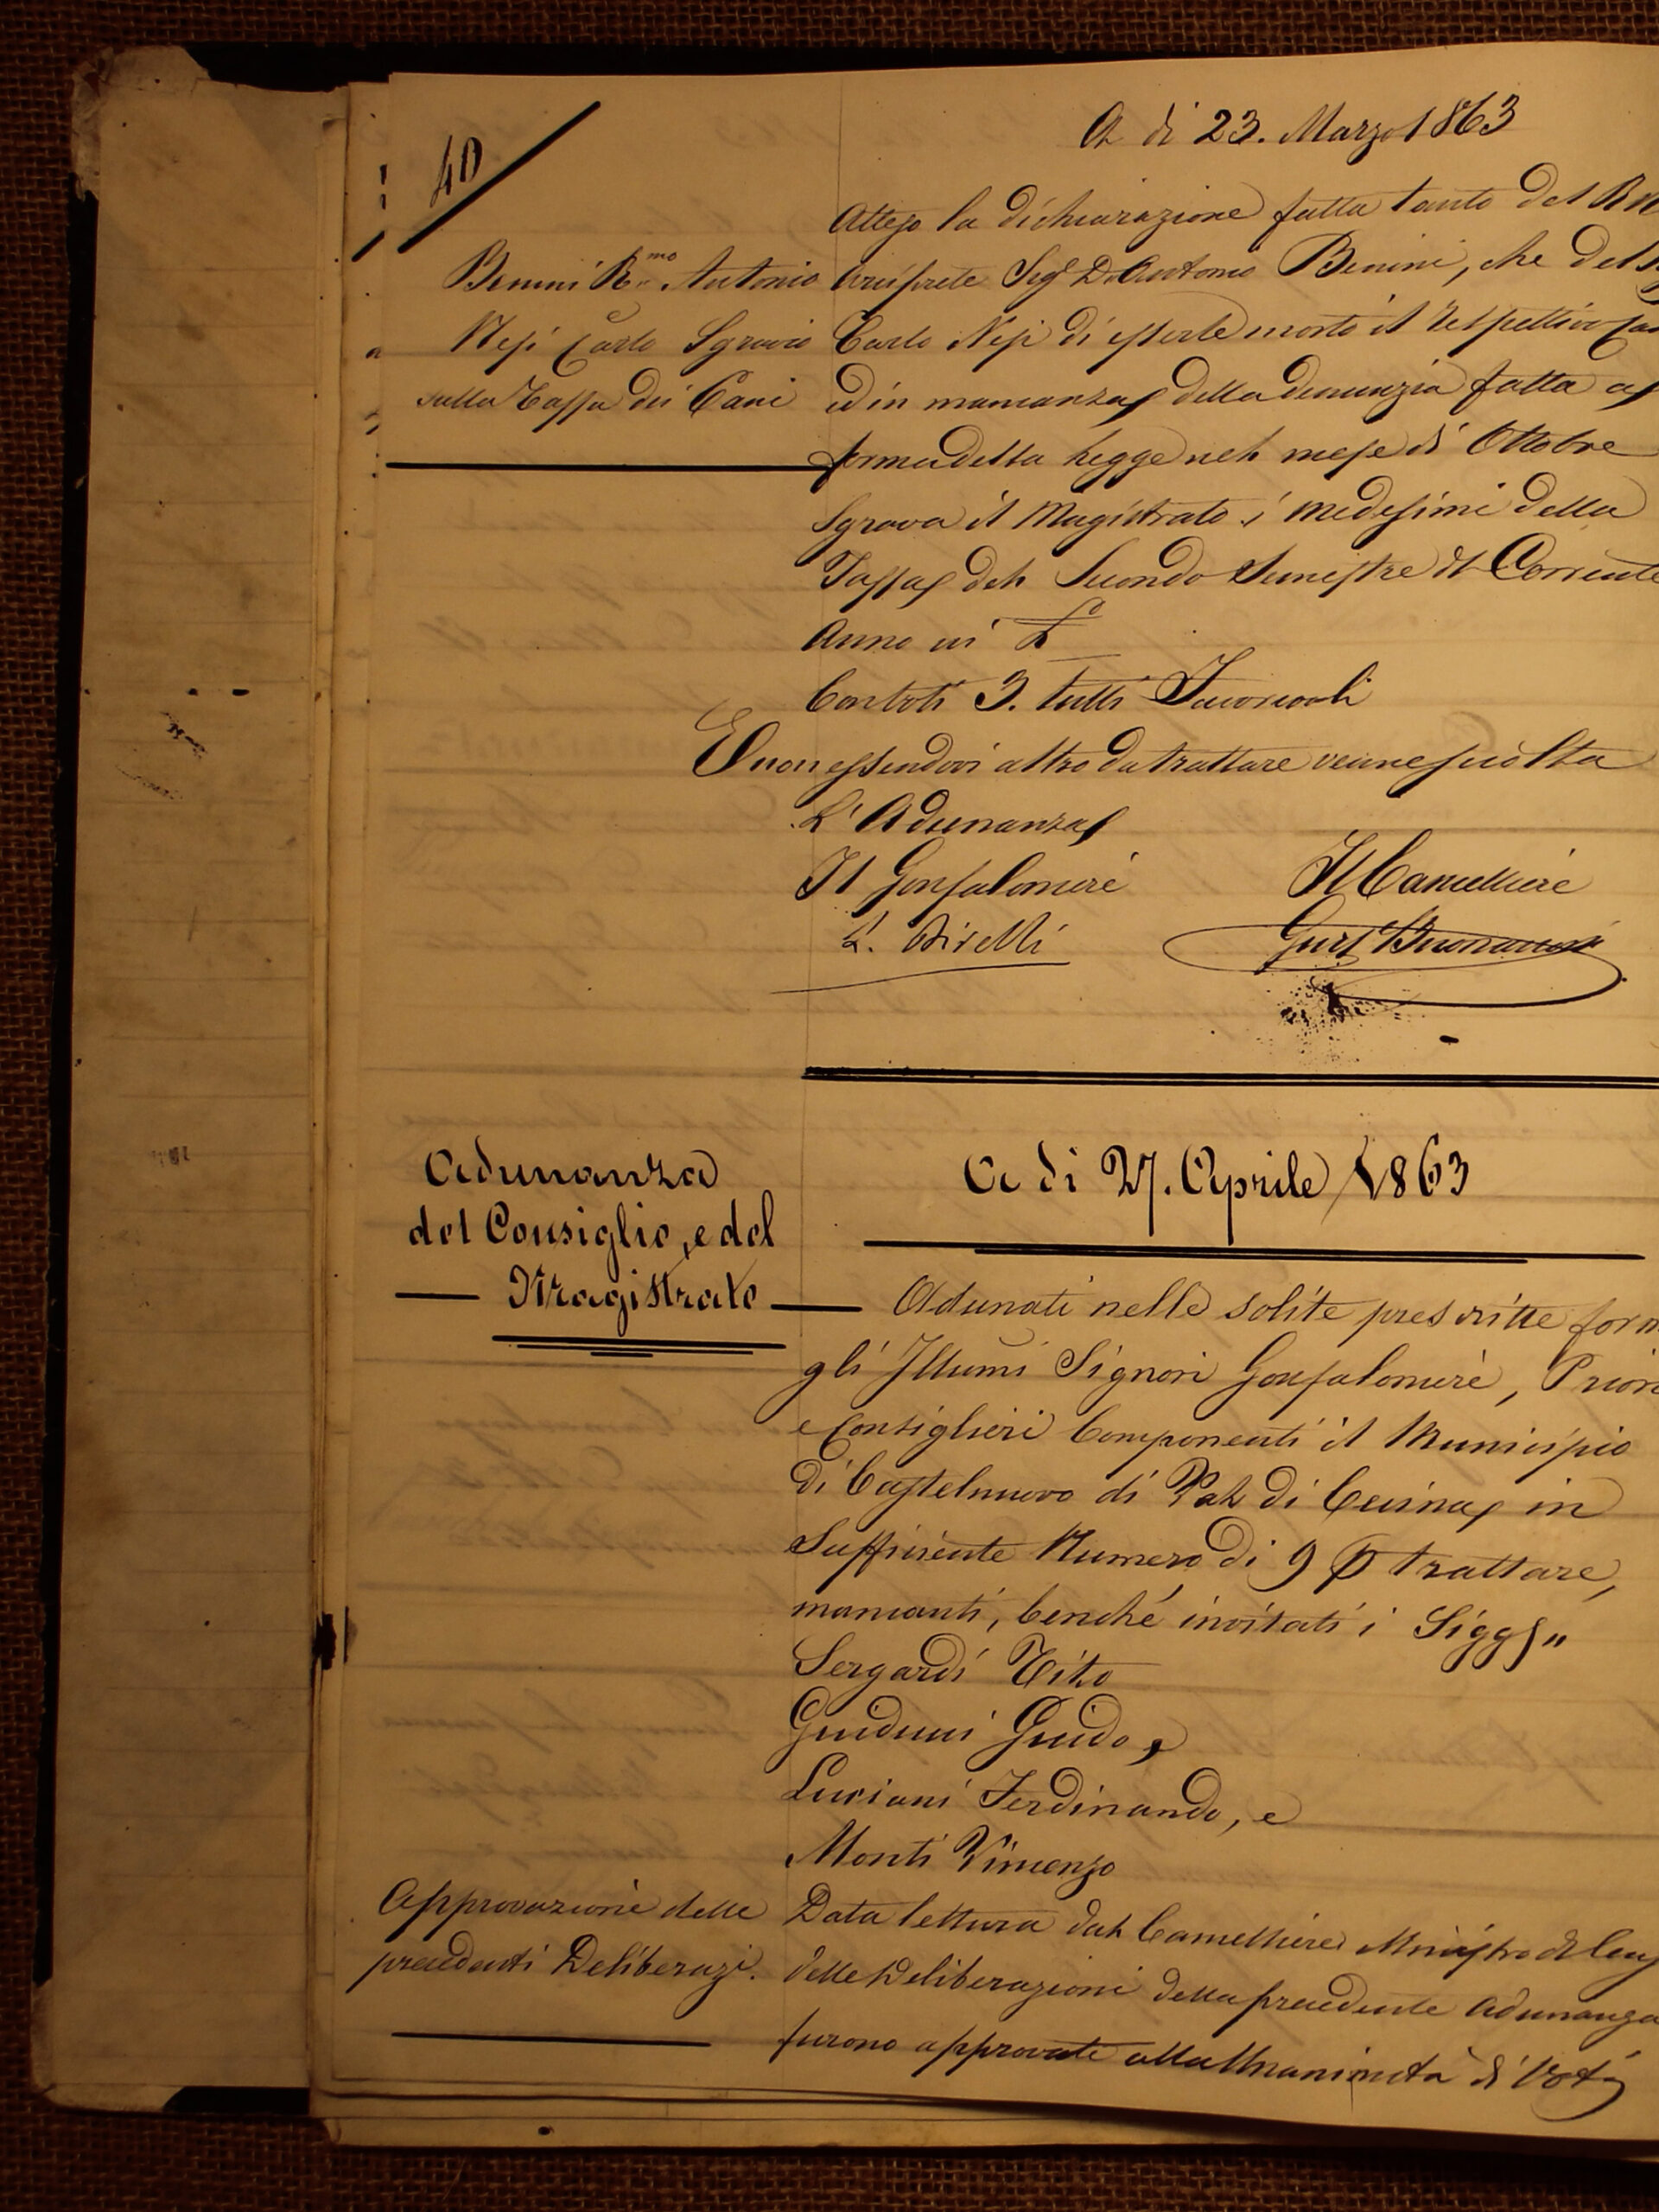 40
A di 23. Marzo 1863
Benini R.mo Antonio
Nesi Carlo Sgravio
sulla Tassa dei Cani
Atteso la dichiarazione fatta tanto dal
Arciprete Sig.r D. Antonio Benini, che dal
Carlo Nesi di esserle morto il respettivo
ed in mancanza della denunzia fatta a
forma della Legge nel mese di Ottobre
Sgrava il Magistrato i medesimi della
Tassa del Secondo Semestre del Corrente
Anno in
Con voti 3. tutti Favorevoli
E non essendovi altro da trattare venne sciolta
L'Adunanza
Il Gonfaloniere
Il Cancelliere
L. Birelli
Adunanza
del Consiglio, e del
Magistrato
A di 27. Aprile 1863
Adunati nelle solite prescritte form
gli Illumi Signori Gonfaloniere, Priori
e Consiglieri Componenti il Municipio
di Castelnuovo di Val di Cecina in
Sufficiente Numero di 9 p trattare,
mancanti, benché invitati i Sigg.
Sergardi Tito
Guiducci Guido,
Luciani Ferdinando, e
Monti Vincenzo
Approvazione delle
precedenti Deliberazi.
Data lettura dal Cancelliere Ministro del Cens
delle Deliberazioni della precedente Adunanza
furono approvate alla Unanimità di Voti